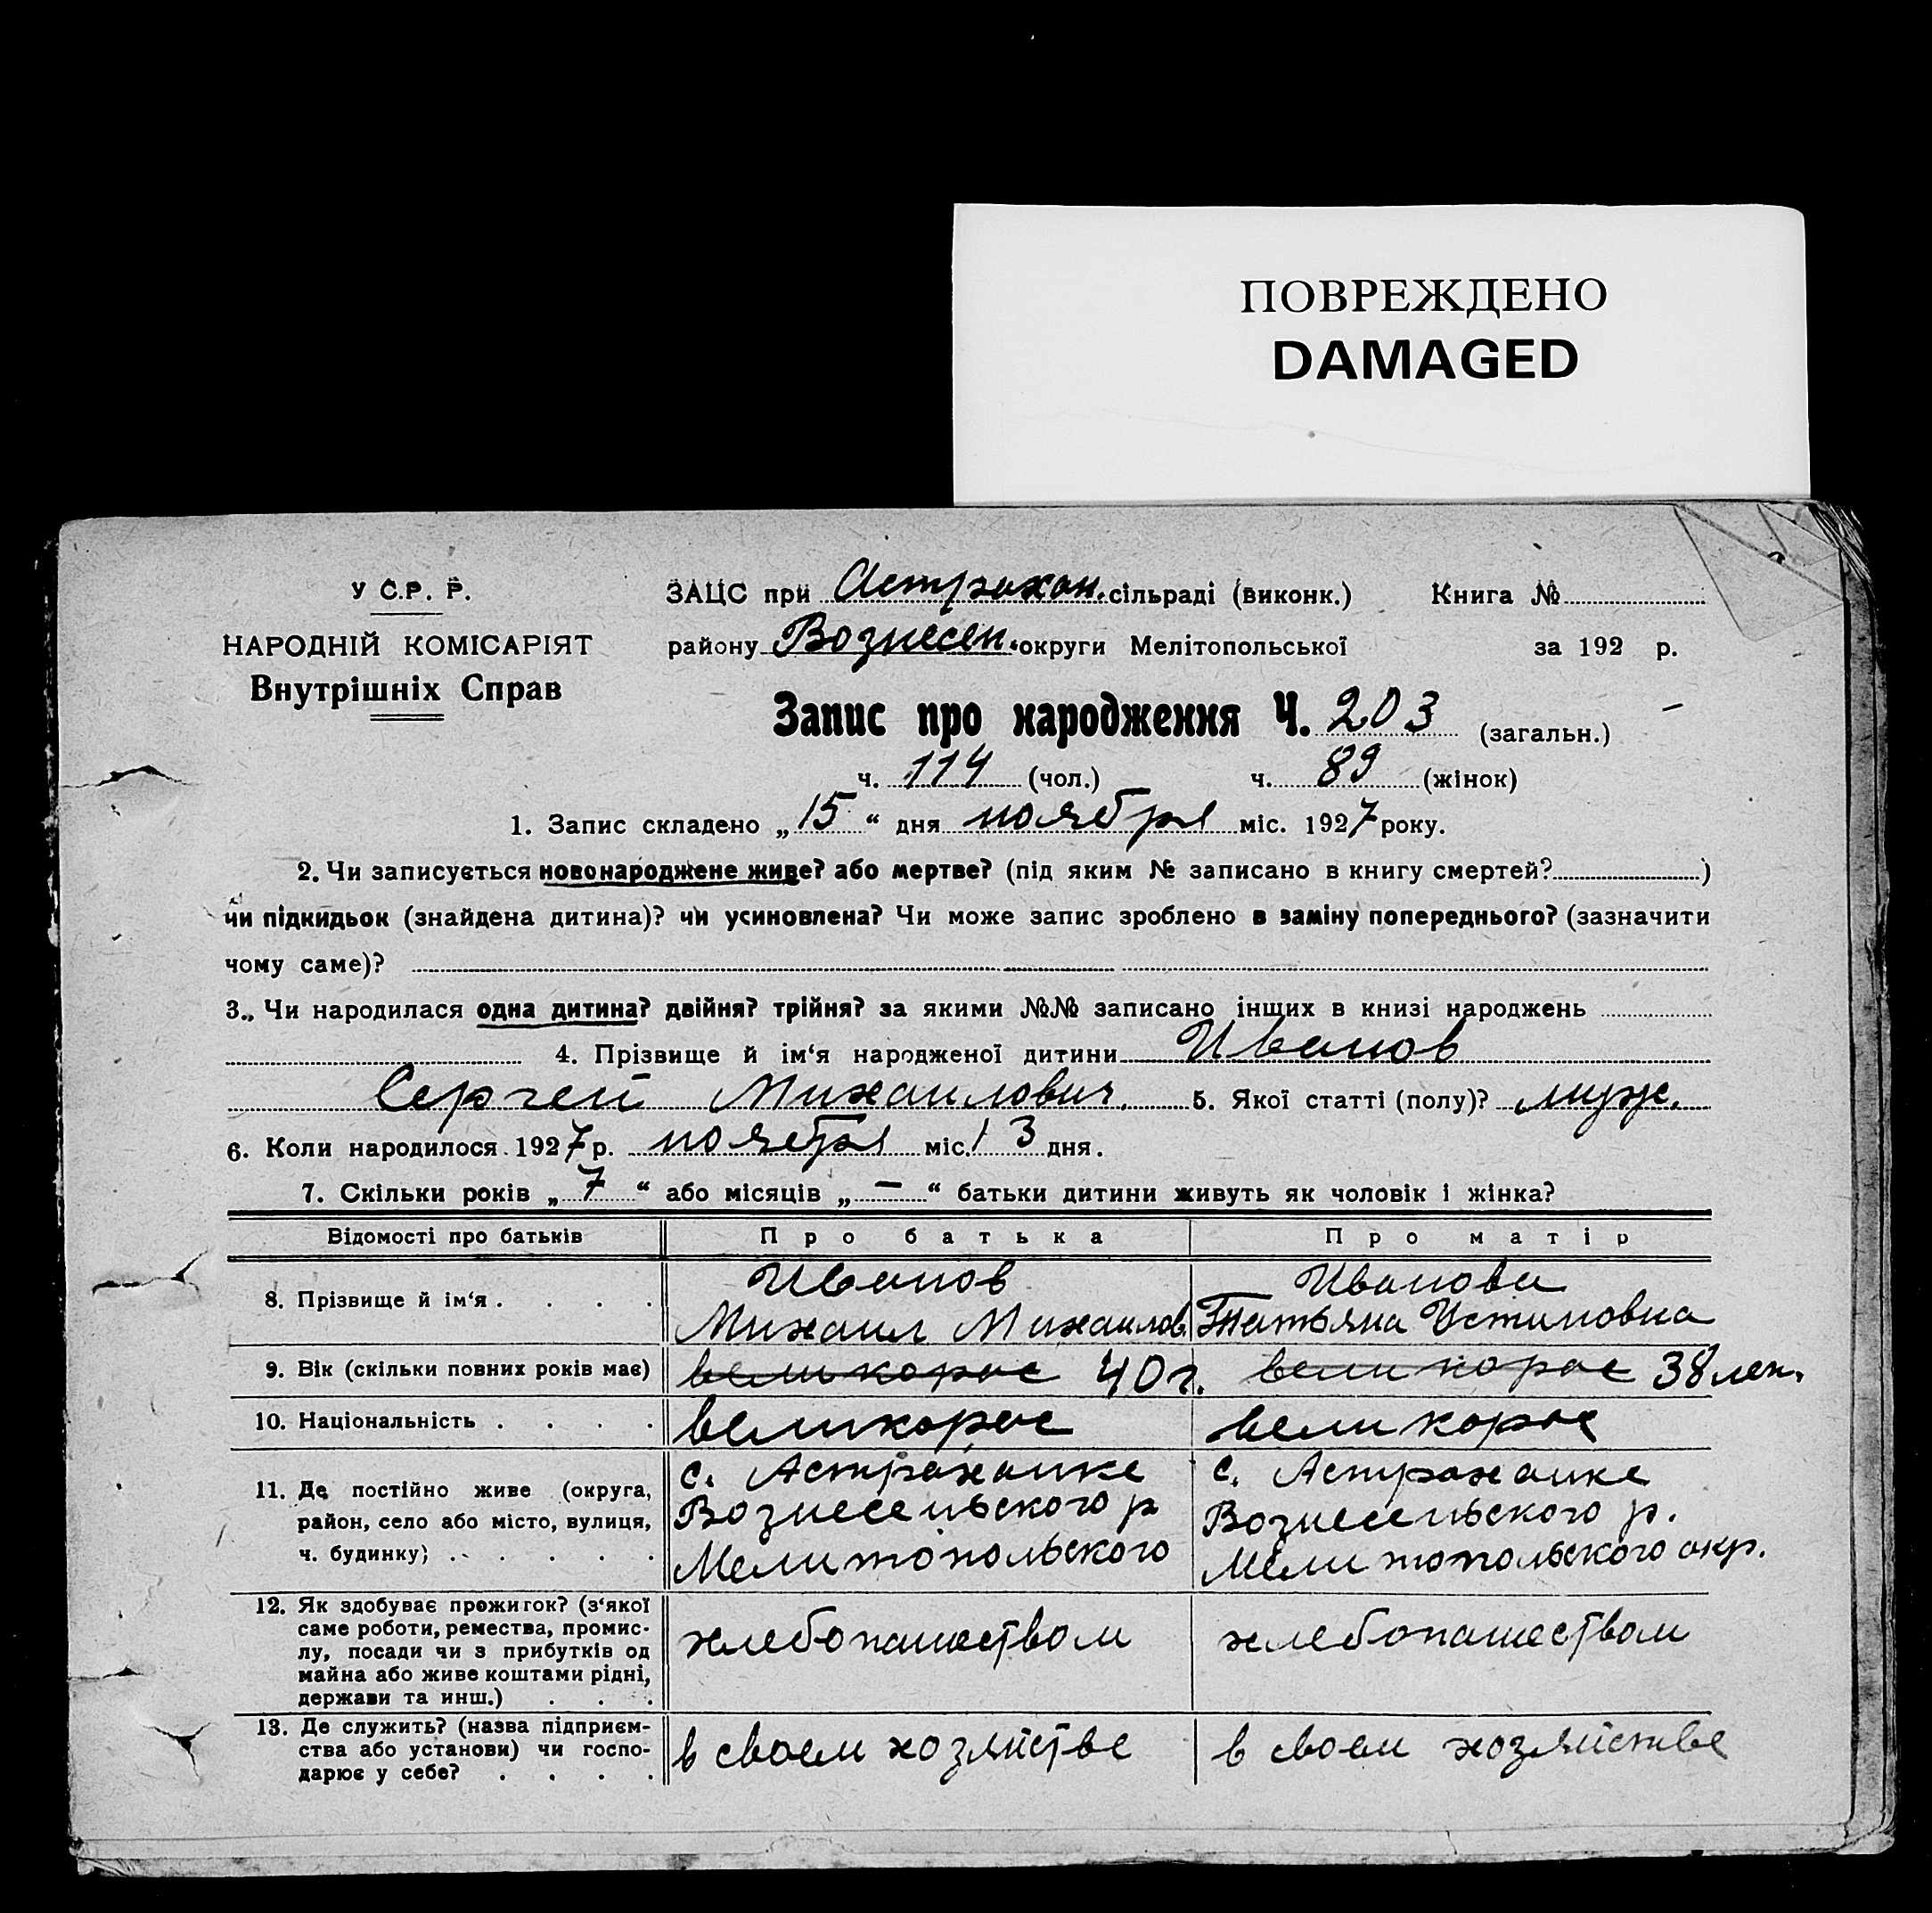 ПОВРЕЖДЕНО
DAMAGED
У С.Р. Р.
НАРОДНІЙ КОМІСАРІЯТ
Внутрішніх Справ
ЗАЦС при Астрахан. сільраді (виконк.) Книга №
району Вознесен. округи Мелітопольської за 192 р.
Запис про народження Ч. 203 (загальн.)
ч. 114 (чол.) ч. 89 (жінок)
1. Запис складено „ 15 “ дня ноября міс. 1927 року.
2. Чи записується новонароджене живе? або мертве? (під яким № записано в книгу смертей? )
чи підкидьок (знайдена дитина)? чи усиновлена? Чи може запис зроблено в заміну попереднього? (зазначити
чому саме)?
3. Чи народилася одна дитина? двійня? трійня? за якими №№ записано інщих в книзі народжень
4. Прізвище й ім‘я народженої дитини Иванов
Сергей Михаилович. 5. Якої статті (полу)? муж.
6. Коли народилося 1927 р. ноября міс. 13 дня.
7. Скільки років „ 7 “ або місяців „ — “ батьки дитини живуть як чоловік і жінка?
Відомості про батьків Про батька Про матір
8. Прізвище й ім‘я . . . . Иванов Иванова
Михаил Михаилов. Татьяна Устиновна
9. Вік (скільки повних років має) великорос 40 г. великорос 38 лет.
10. Національність . . . . великорос великорос
11. Де постійно живе (округа, с. Астраханке с. Астраханке
район, село або місто, вулиця, Вознесеньского р Вознесеньского р.
ч. будинку) . . . . . Мелитопольского Мелитопольского окр.
12. Як здобуває прожиток? (з‘якої
саме роботи, ремества, промис-
лу, посади чи з прибутків од хлебопашеством хлебопашеством
майна або живе коштами рідні,
держави та инш.) . . .
13. Де служить? (назва підприєм-
ства або установи) чи госпо- в своем хозяйстве в своем хозяйстве
дарює у себе? . . . .